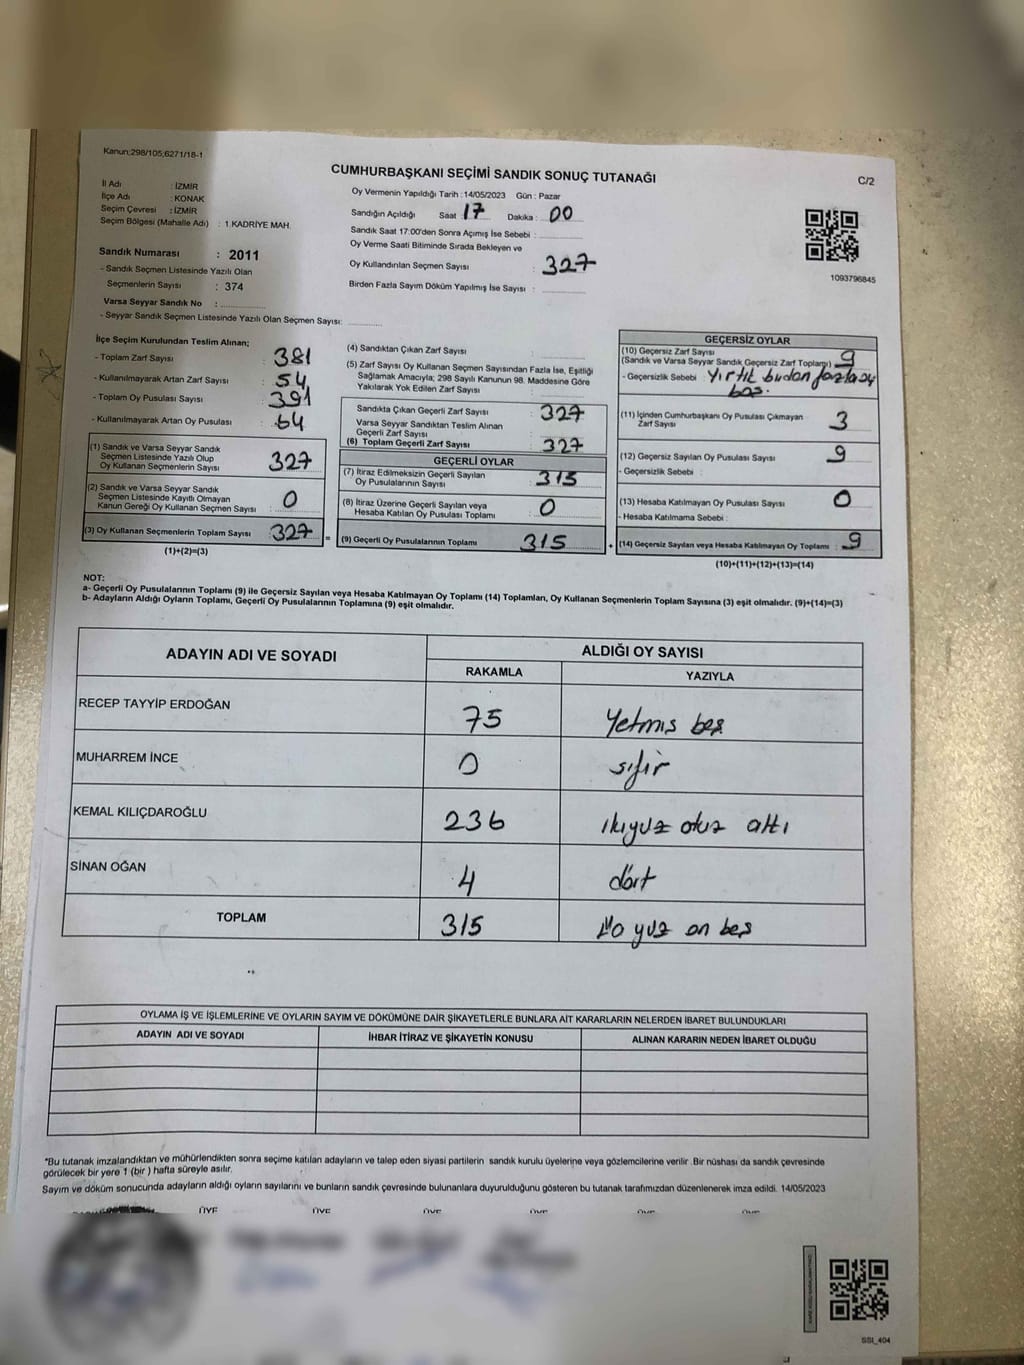 Kanun:298/105;6271/18-1
CUMHURBAŞKANI SEÇİMİ SANDIK SONUÇ TUTANAĞI
C/2
İl Adı : İZMİR
İlçe Adı : KONAK
Seçim Çevresi : İZMİR
Seçim Bölgesi (Mahalle Adı) : 1.KADRİYE MAH.
Sandık Numarası : 2011
- Sandık Seçmen Listesinde Yazılı Olan
Seçmenlerin Sayısı : 374
Varsa Seyyar Sandık No :
- Seyyar Sandık Seçmen Listesinde Yazılı Olan Seçmen Sayısı:
Oy Vermenin Yapıldığı Tarih :14/05/2023 Gün : Pazar
Sandığın Açıldığı Saat 17 Dakika : 00
Sandık Saat 17:00'den Sonra Açımış İse Sebebi :
Oy Verme Saati Bitiminde Sırada Bekleyen ve
Oy Kullandırılan Seçmen Sayısı : 327
Birden Fazla Sayım Döküm Yapılmış İse Sayısı :
1093796845
İlçe Seçim Kurulundan Teslim Alınan;
- Toplam Zarf Sayısı : 381
- Kullanılmayarak Artan Zarf Sayısı : 54
- Toplam Oy Pusulası Sayısı : 391
- Kullanılmayarak Artan Oy Pusulası : 64
(1) Sandık ve Varsa Seyyar Sandık
Seçmen Listesinde Yazılı Olup
Oy Kullanan Seçmenlerin Sayısı : 327
(2) Sandık ve Varsa Seyyar Sandık
Seçmen Listesinde Kayıtlı Olmayan
Kanun Gereği Oy Kullanan Seçmen Sayısı : 0
(3) Oy Kullanan Seçmenlerin Toplam Sayısı : 327
(1)+(2)=(3)
(4) Sandıktan Çıkan Zarf Sayısı :
(5) Zarf Sayısı Oy Kullanan Seçmen Sayısından Fazla İse, Eşitliği
Sağlamak Amacıyla; 298 Sayılı Kanunun 98. Maddesine Göre
Yakılarak Yok Edilen Zarf Sayısı :
Sandıkta Çıkan Geçerli Zarf Sayısı : 327
Varsa Seyyar Sandıktan Teslim Alınan
Geçerli Zarf Sayısı :
(6) Toplam Geçerli Zarf Sayısı : 327
GEÇERLİ OYLAR
(7) İtiraz Edilmeksizin Geçerli Sayılan
Oy Pusulalarının Sayısı : 315
(8) İtiraz Üzerine Geçerli Sayılan veya
Hesaba Katılan Oy Pusulası Toplamı : 0
= (9) Geçerli Oy Pusulalarının Toplamı : 315
GEÇERSİZ OYLAR
(10) Geçersiz Zarf Sayısı
(Sandık ve Varsa Seyyar Sandık Geçersiz Zarf Toplamı) : 9
- Geçersizlik Sebebi : Yırtık birden fazla oy
boş.
(11) İçinden Cumhurbaşkanı Oy Pusulası Çıkmayan
Zarf Sayısı : 3
(12) Geçersiz Sayılan Oy Pusulası Sayısı : 9
- Geçersizlik Sebebi :
(13) Hesaba Katılmayan Oy Pusulası Sayısı : 0
- Hesaba Katılmama Sebebi :
+ (14) Geçersiz Sayılan veya Hesaba Katılmayan Oy Toplamı : 9
(10)+(11)+(12)+(13)=(14)
NOT:
a- Geçerli Oy Pusulalarının Toplamı (9) ile Geçersiz Sayılan veya Hesaba Katılmayan Oy Toplamı (14) Toplamları, Oy Kullanan Seçmenlerin Toplam Sayısına (3) eşit olmalıdır. (9)+(14)=(3)
b- Adayların Aldığı Oyların Toplamı, Geçerli Oy Pusulalarının Toplamına (9) eşit olmalıdır.
ADAYIN ADI VE SOYADI
ALDIĞI OY SAYISI
RAKAMLA YAZIYLA
RECEP TAYYİP ERDOĞAN 75 Yetmiş beş
MUHARREM İNCE 0 sıfır
KEMAL KILIÇDAROĞLU 236 ikiyüz otuz altı
SİNAN OĞAN 4 dört
TOPLAM 315 yüz on beş
OYLAMA İŞ VE İŞLEMLERİNE VE OYLARIN SAYIM VE DÖKÜMÜNE DAİR ŞİKAYETLERLE BUNLARA AİT KARARLARIN NELERDEN İBARET BULUNDUKLARI
ADAYIN ADI VE SOYADI İHBAR İTİRAZ VE ŞİKAYETİN KONUSU ALINAN KARARIN NEDEN İBARET OLDUĞU
*Bu tutanak imzalandıktan ve mühürlendikten sonra seçime katılan adayların ve talep eden siyasi partilerin sandık kurulu üyelerine veya gözlemcilerine verilir .Bir nüshası da sandık çevresinde
görülecek bir yere 1 (bir ) hafta süreyle asılır.
Sayım ve döküm sonucunda adayların aldığı oyların sayılarını ve bunların sandık çevresinde bulunanlara duyurulduğunu gösteren bu tutanak tarafımızdan düzenlenerek imza edildi. 14/05/2023
ÜYE ÜYE ÜYE ÜYE ÜYE ÜYE
SSI_404